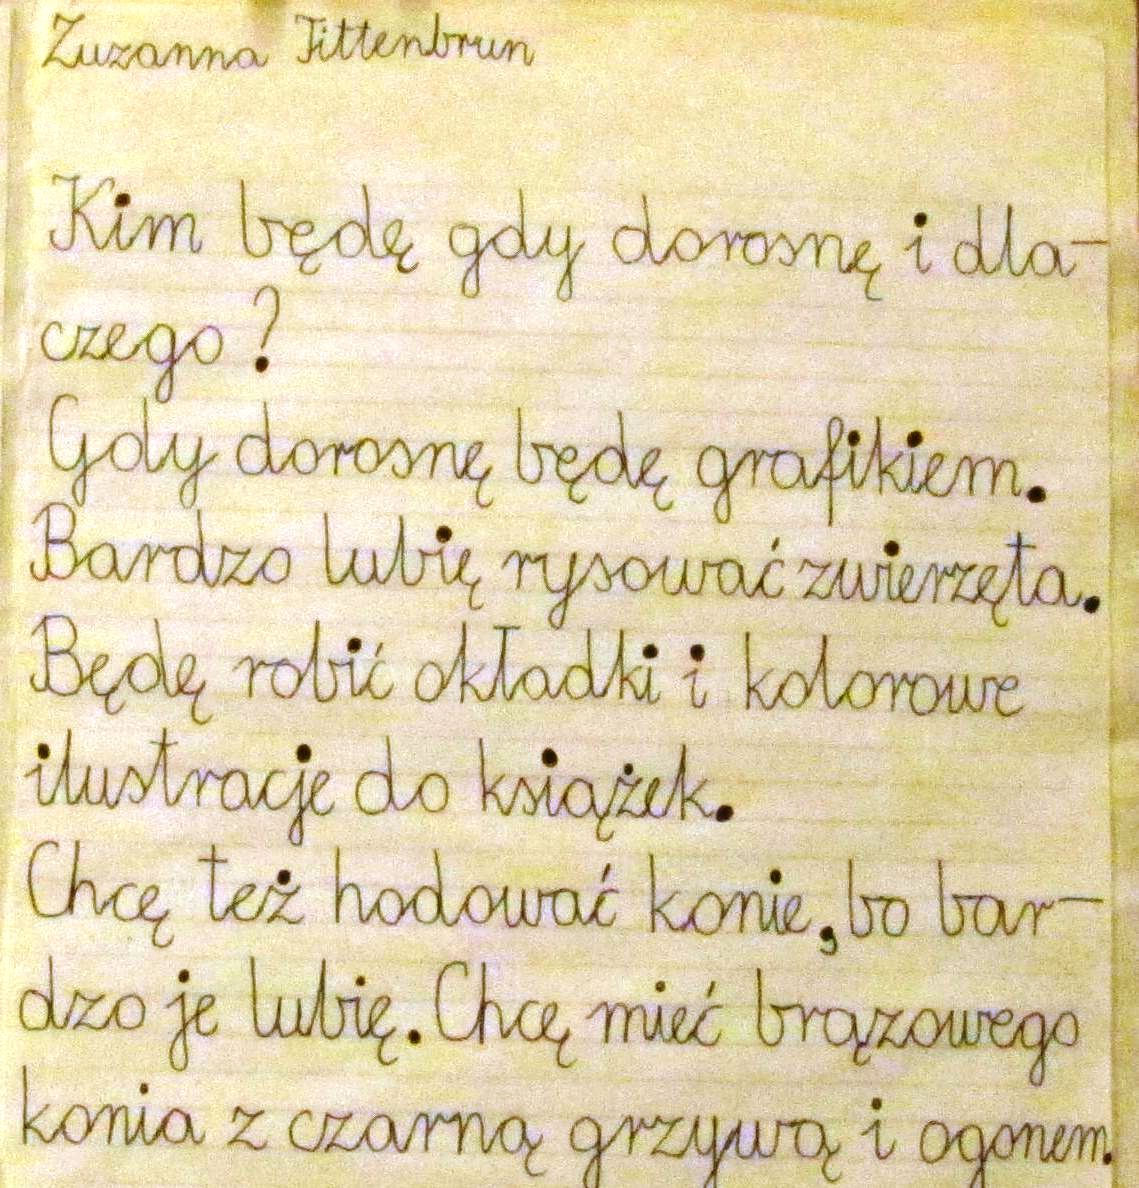 Zuzanna Tittenbrun
Kim będę gdy dorosnę i dla-
czego?
Gdy dorosnę będę grafikiem.
Bardzo lubię rysować zwierzęta.
Będę robić okładki i kolorowe
ilustracje do książek.
Chcę też hodować konie, bo bar-
dzo je lubię. Chcę mieć brązowego
konia z czarną grzywą i ogonem.